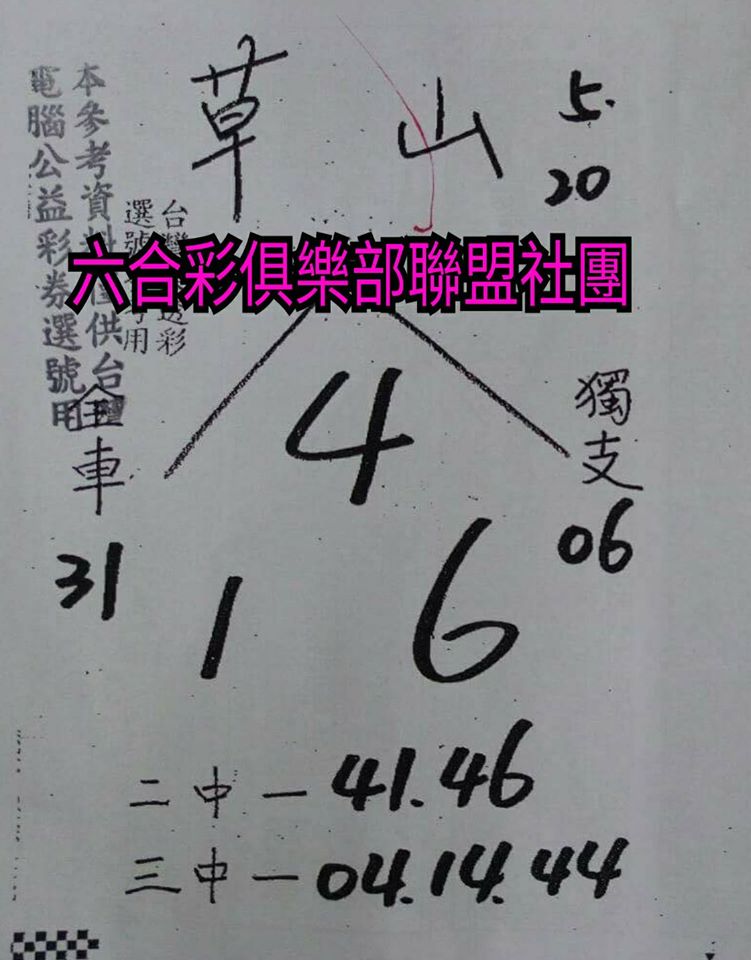 草山
5.
20
本參考資料僅供台灣
電腦公益彩券選號用
台灣
透彩
選號
用
六合彩俱樂部聯盟社團
4
全車
31
獨支
06
1 6
二中－41.46
三中－04.14.44